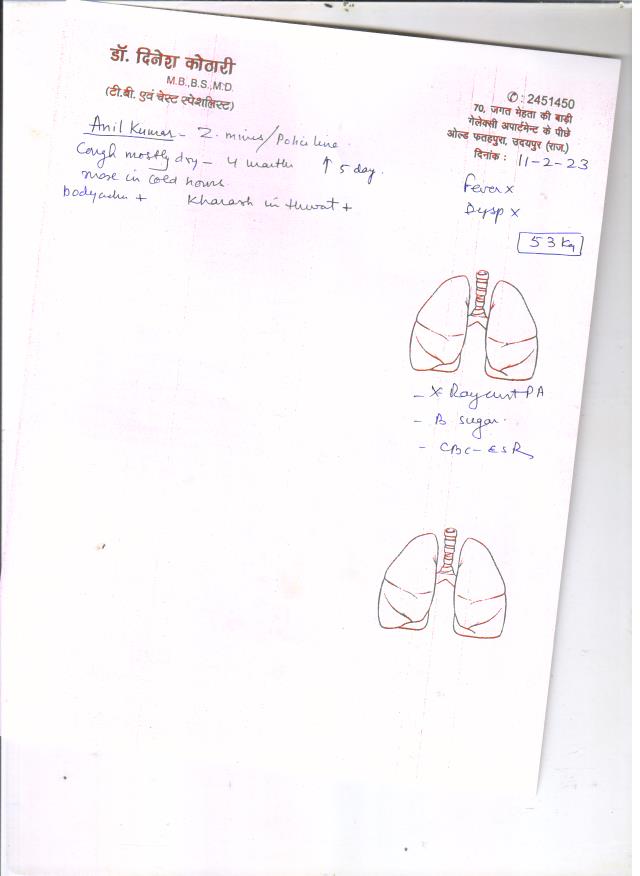 डॉ. दिनेश कोठारी
M.B.,B.S.,M.D.
(टी.बी. एवं चेस्ट स्पेशलिस्ट)
✆: 2451450
70, जगत मेहता की बाड़ी
गेलेक्सी अपार्टमेन्ट के पीछे
ओल्ड फतहपुरा, उदयपुर (राज.)
दिनांक : 11-2-23
Anil Kumar - Z. mines/Police line
Cough mostly dry - 4 months ↑ 5 day.
more in cold hours
bodyache + Kharash in throat +
Fever x
Dysp x
53 Kg
- X Ray chest PA
- B sugar.
- CBC - ESR